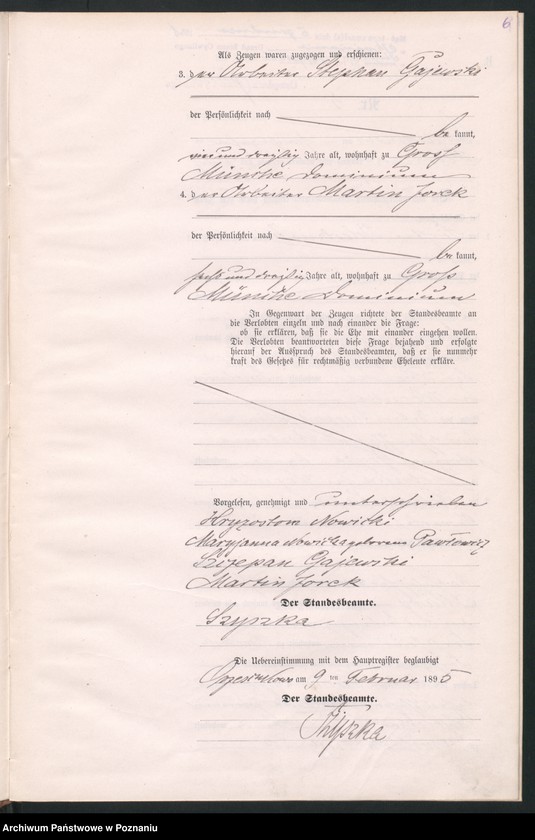 6
Als Zeugen waren zugezogen und erschienen:
3. der Arbeiter Stephan Gajewski
der Persönlichkeit nach
be kannt,
vier und dreißig Jahre alt, wohnhaft zu Groß
Münche Dominium
4. der Arbeiter Martin Jorck
der Persönlichkeit nach
be kannt,
sechs und dreißig Jahre alt, wohnhaft zu Groß
Münche Dominium
In Gegenwart der Zeugen richtete der Standesbeamte an
die Verlobten einzeln und nach einander die Frage:
ob sie erklären, daß sie die Ehe mit einander eingehen wollen.
Die Verlobten beantworteten diese Frage bejahend und erfolgte
hierauf der Ausspruch des Standesbeamten, daß er sie nunmehr
kraft des Gesetzes für rechtmäßig verbundene Eheleute erkläre.
Vorgelesen, genehmigt und unterschrieben
Hryzostom Nowicki
Maryjanna Nowicka geborene Pawłowicz
Szczepan Gajewski
Martin Jorck
Der Standesbeamte.
Szyszka
Die Uebereinstimmung mit dem Hauptregister beglaubigt
am 9 ten Februar 1895
Der Standesbeamte.
Szyszka
Archiwum Państwowe w Poznaniu